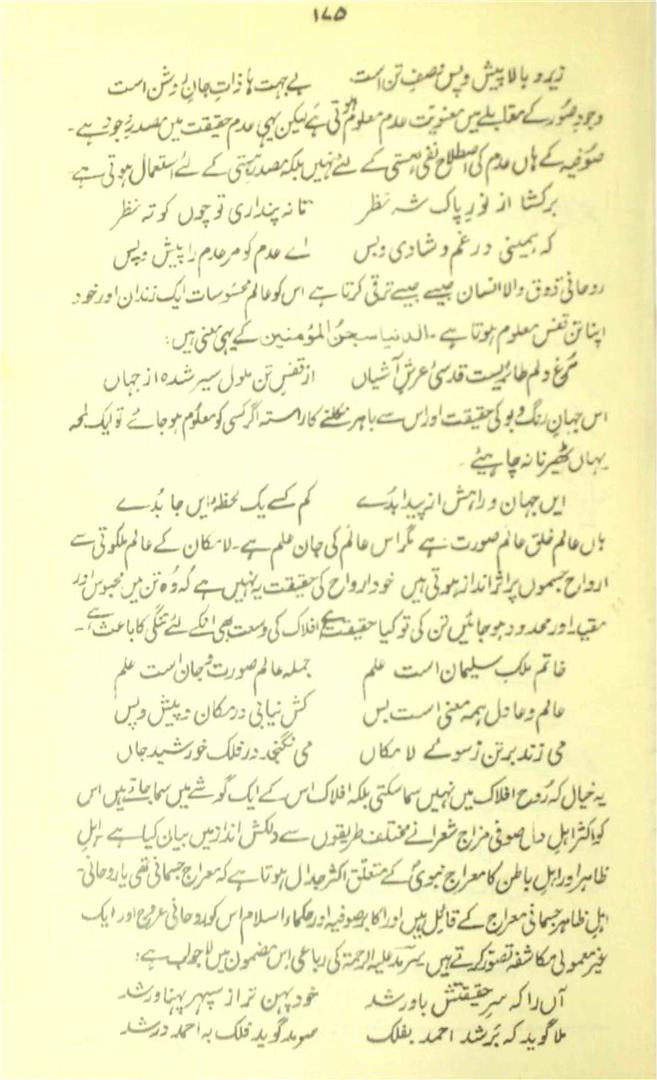 ۱۷۵
زیر و بالا پیش و پس وصف تن است بے جہت ہا ذاتِ جانِ روشن است
وجودِ صُوَر کے مقابلے میں معنویت عدم معلوم ہوتی ہے لیکن یہی عدم حقیقت میں مصدرِ وجود ہے۔
صوفیہ کے ہاں عدم کی اصطلاح نفی ہستی کے لئے نہیں بلکہ مصدرِ ہستی کے لئے استعمال ہوتی ہے۔
برکشا از نورِ پاک شہ نظر تا نہ پنداری تو چوں کوتہ نظر
کہ ہمینی در غم و شادی و بس اے عدم کو مر عدم را پیش و پس
روحانی ذوق والا انسان جیسے جیسے ترقی کرتا ہے اس کو عالمِ محسوسات ایک زندان اور خود
اپنا تن قفس معلوم ہوتا ہے۔ الدنیا سجن المؤمنین کے یہی معنی ہیں:
مُرغِ دلم طائریست قدسیٔ عرش آشیاں از قفسِ تن ملول سیر شدہ از جہاں
اس جہانِ رنگ و بو کی حقیقت اور اس سے باہر نکلنے کا راستہ اگر کسی کو معلوم ہو جائے تو ایک لمحہ
یہاں ٹھیرنا نہ چاہیئے۔
ایں جہان و راہش ار پیدا بُدے کم کسے یک لحظہ ایں جا بُدے
ہاں عالمِ خلق عالمِ صورت ہے مگر اس عالم کی جان علم ہے۔ لامکان کے عالمِ ملکوتی سے
ارواح جسموں پر اثر انداز ہوتی ہیں خود ارواح کی حقیقت یہ نہیں ہے کہ وہ تن میں محبوس اور
مقید اور محدود ہو جائیں تن کی تو کیا حقیقت ہے افلاک کی وسعت بھی انکے لئے تنگی کا باعث ہے۔
خاتمِ ملکِ سلیمان است علم جملہ عالم صورت و جان است علم
عالم و عادل ہمہ معنی است بس کش نیابی در مکان و پیش و پس
می زند بر تن ز سوئے لامکاں می نگنجد در فلک خورشیدِ جاں
یہ خیال کہ رُوح افلاک میں نہیں سما سکتی بلکہ افلاک اس کے ایک گوشے میں سما جاتے ہیں اس
کو اکثر اہلِ دل صوفی مزاج شعرا نے مختلف طریقوں سے دلکش انداز میں بیان کیا ہے۔ اہلِ
ظاہر اور اہلِ باطن کا معراجِ نبویؐ کے متعلق اکثر جدال ہوتا ہے کہ معراج جسمانی تھی یا روحانی۔
اہلِ ظاہر جسمانی معراج کے قائل ہیں اور اکابر صوفیہ اور حکماءِ اسلام اس کو روحانی عروج اور ایک
غیر معمولی مکاشفہ تصور کرتے ہیں۔ سرمد علیہ الرحمۃ کی رباعی اس مضمون میں لاجواب ہے:
آں را کہ سرِ حقیقتش باور شد خود پہن تر از سپہرِ پہناور شد
ملا گوید کہ بَر شد احمد بفلک سرمد گوید فلک بہ احمد در شد